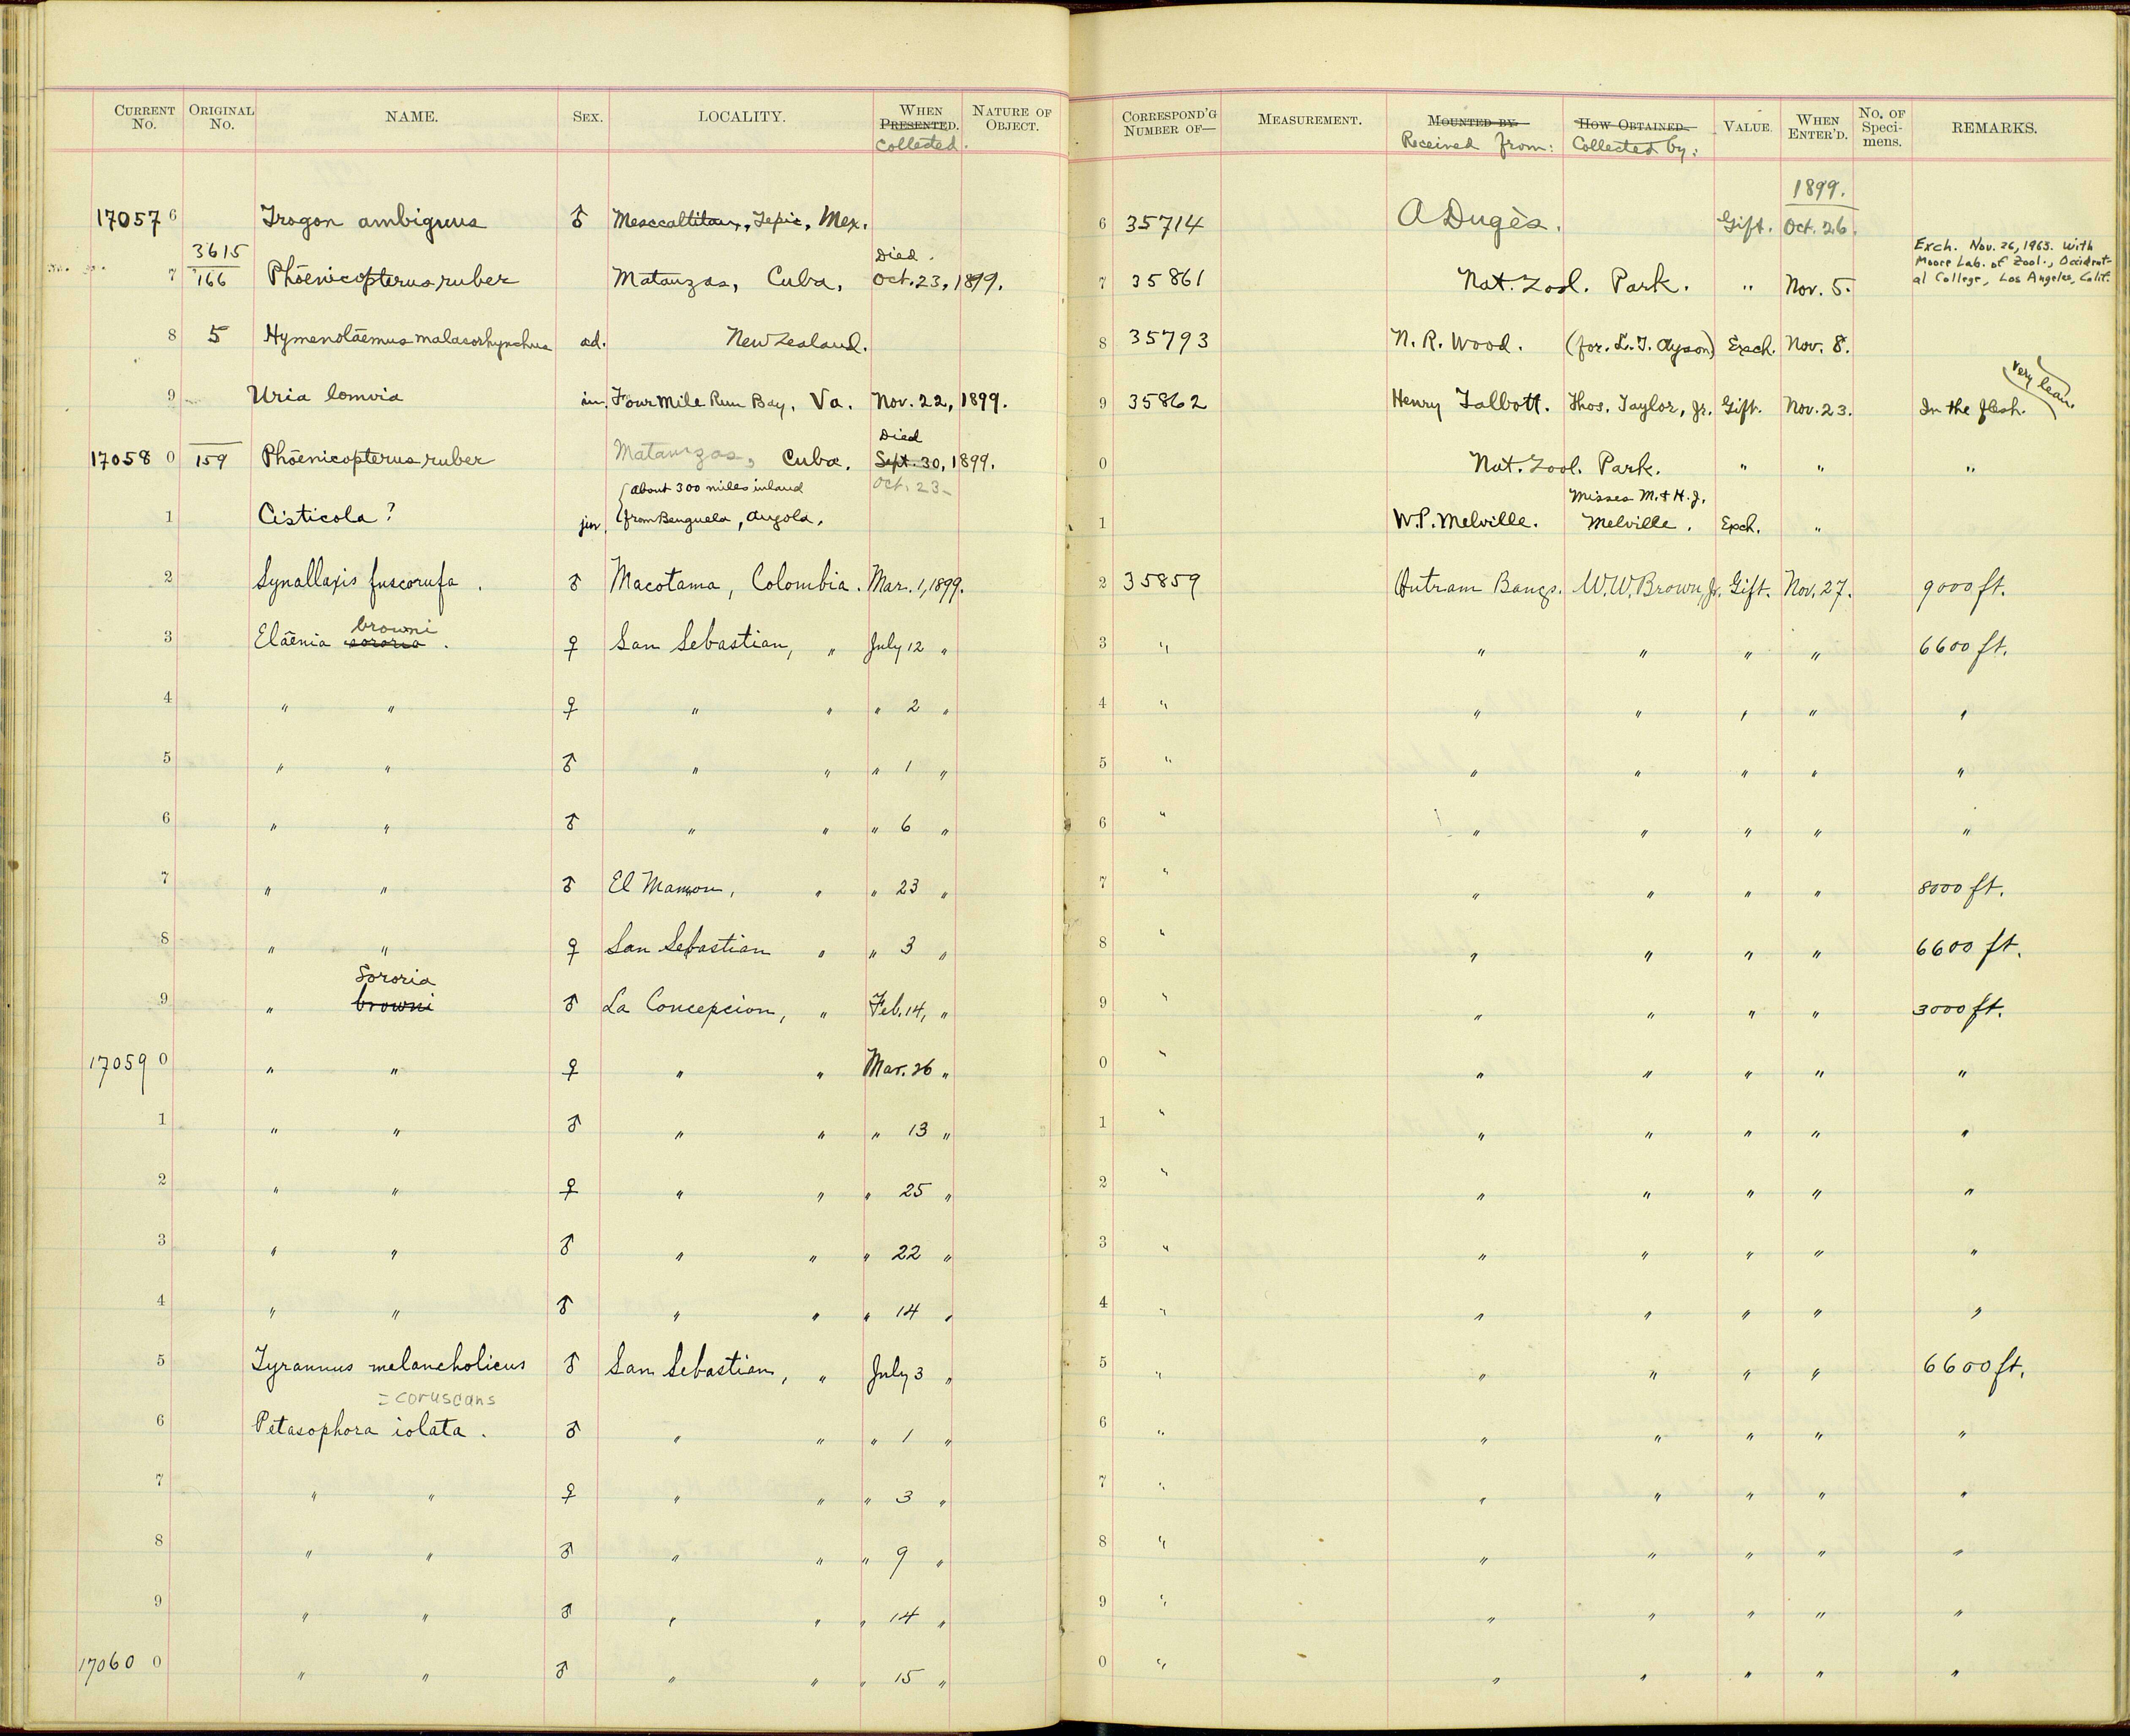 CURRENT No. ORIGINAL No. NAME. SEX. LOCALITY. WHEN PRESENTED. Collected. NATURE OF OBJECT. CORRESPOND'G NUMBER OF— MEASUREMENT. MOUNTED BY Received from: HOW OBTAINED. Collected by: VALUE. WHEN ENTER'D. No. OF Speci-mens. REMARKS.
1899.
17057 6 Trogon ambiguus ♂ Mesccaltitan, Tepic, Mex. 6 35714 A Dugès. Gift. Oct. 26.
7 3615 166 Phoenicopterus ruber Matanzas, Cuba, Died. Oct. 23, 1899. 7 35861 Nat. Zool. Park. " Nov. 5. Exch. Nov. 26, 1963. With Moore Lab. of Zool., Occident-al College, Los Angeles, Calif.
8 5 Hymenolaemus malacorhynchus ad. New Zealand. 8 35793 N. R. Wood. (for. L. T. Ayson) Exch. Nov. 8.
9 Uria lomvia im. Four Mile Run Bay, Va. Nov. 22, 1899. 9 35862 Henry Talbott. Thos. Taylor, Jr. Gift. Nov. 23. In the flesh. (very lean.)
17058 0 159 Phoenicopterus ruber Matanzas, Cuba. Died Sept. 30, 1899. Oct. 23- 0 Nat. Zool. Park. " " "
1 Cisticola? juv. {About 300 miles inland from Benguela, Angola. 1 W. P. Melville. Misses M. & H. J. Melville. Exch. "
2 Synallaxis fuscorufa. ♂ Macotama, Colombia. Mar. 1, 1899. 2 35859 Outram Bangs. W. W. Brown, Jr. Gift. Nov. 27. 9000 ft.
3 Elaenia sororia browni. ♀ San Sebastian, " July 12 " 3 " " " " " 6600 ft.
4 " " ♀ " " " 2 " 4 " " " " " "
5 " " ♂ " " " 1 " 5 " " " " " "
6 " " ♂ " " " 6 " 6 " " " " " "
7 " " ♂ El Mamon, " " 23 " 7 " " " " " 8000 ft.
8 " " ♀ San Sebastian " " 3 " 8 " " " " " 6600 ft.
9 " browni Sororia ♂ La Concepcion, " Feb. 14, " 9 " " " " " 3000 ft.
17059 0 " " ♀ " " Mar. 26 " 0 " " " " " "
1 " " ♂ " " " 13 " 1 " " " " " "
2 " " ♀ " " " 25 " 2 " " " " " "
3 " " ♂ " " " 22 " 3 " " " " " "
4 " " ♂ " " " 14 " 4 " " " " " "
5 Tyrannus melancholicus ♂ San Sebastian, " July 3 " 5 " " " " " 6600 ft.
= coruscans
6 Petasophora iolata. ♂ " " " 1 " 6 " " " " " "
7 " " ♀ " " " 3 " 7 " " " " " "
8 " " ♂ " " " 9 " 8 " " " " " "
9 " " ♂ " " " 14 " 9 " " " " " "
17060 0 " " ♂ " " " 15 " 0 " " " " " "